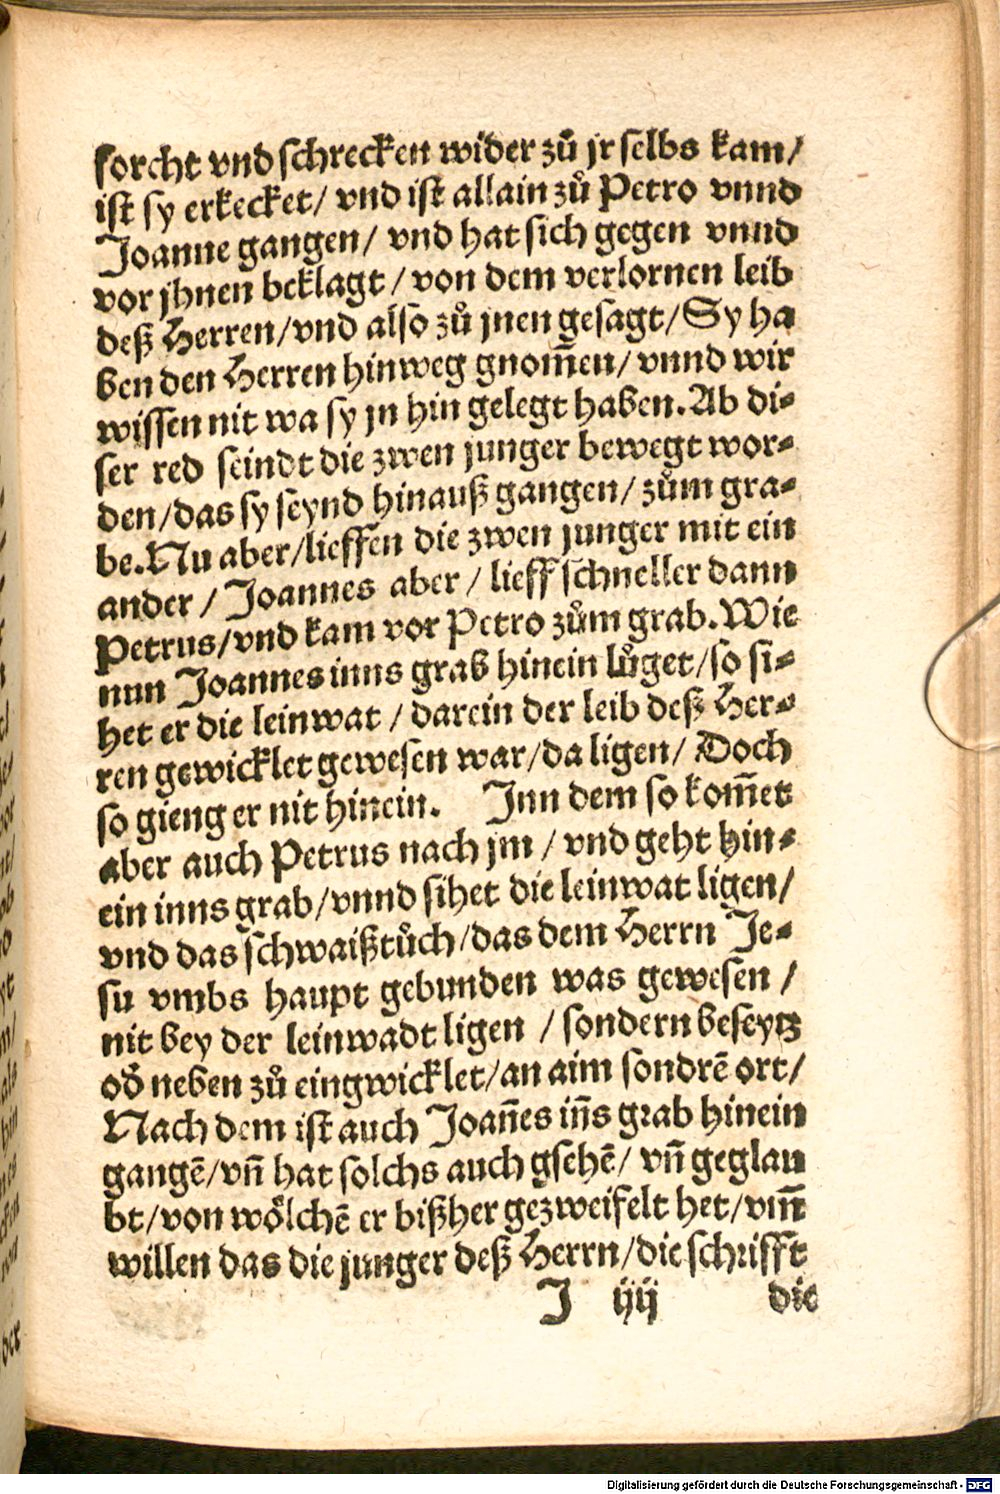 forcht vnd schrecken wider zů jr selbs kam/
ist sy erkecket/ vnd ist allain zů Petro vnnd
Joanne gangen/ vnd hat sich gegen vnnd
vor jhnen beklagt / von dem verlornen leib
deß Herren/vnd also zů jnen gesagt/Sy ha
ben den Herren hinweg gnom̄en/ vnnd wir
wissen nit wa sy jn hin gelegt haben. Ab di-
ser red seindt die zwen junger bewegt wor-
den/das sy seynd hinauß gangen/ zům gra-
be. Nu aber/lieffen die zwen junger mit ein
ander / Joannes aber / lieff schneller dann
Petrus/vnd kam vor Petro zům grab. Wie
nun Joannes inns grab hinein lůget/so si-
het er die leinwat / darein der leib deß Her-
ren gewicklet gewesen war/da ligen/ Doch
so gieng er nit hinein. Jnn dem so kom̄et
aber auch Petrus nach jm / vnd geht hin-
ein inns grab/vnnd sihet die leinwat ligen/
vnd das schwaißtůch/das dem Herrn Je-
su vmbs haupt gebunden was gewesen /
nit bey der leinwadt ligen / sondern beseytz
od̓ neben zů eingwicklet/an aim sondrē ort/
Nach dem ist auch Joan̄es in̄s grab hinein
gangē/vn̄ hat solchs auch gsehē/ vn̄ geglau
bt/von wölchē er bißher gezweifelt het/vm̄
willen das die junger deß Herrn/die schrifft
J iiij die
der
Digitalisierung gefördert durch die Deutsche Forschungsgemeinschaft - DFG